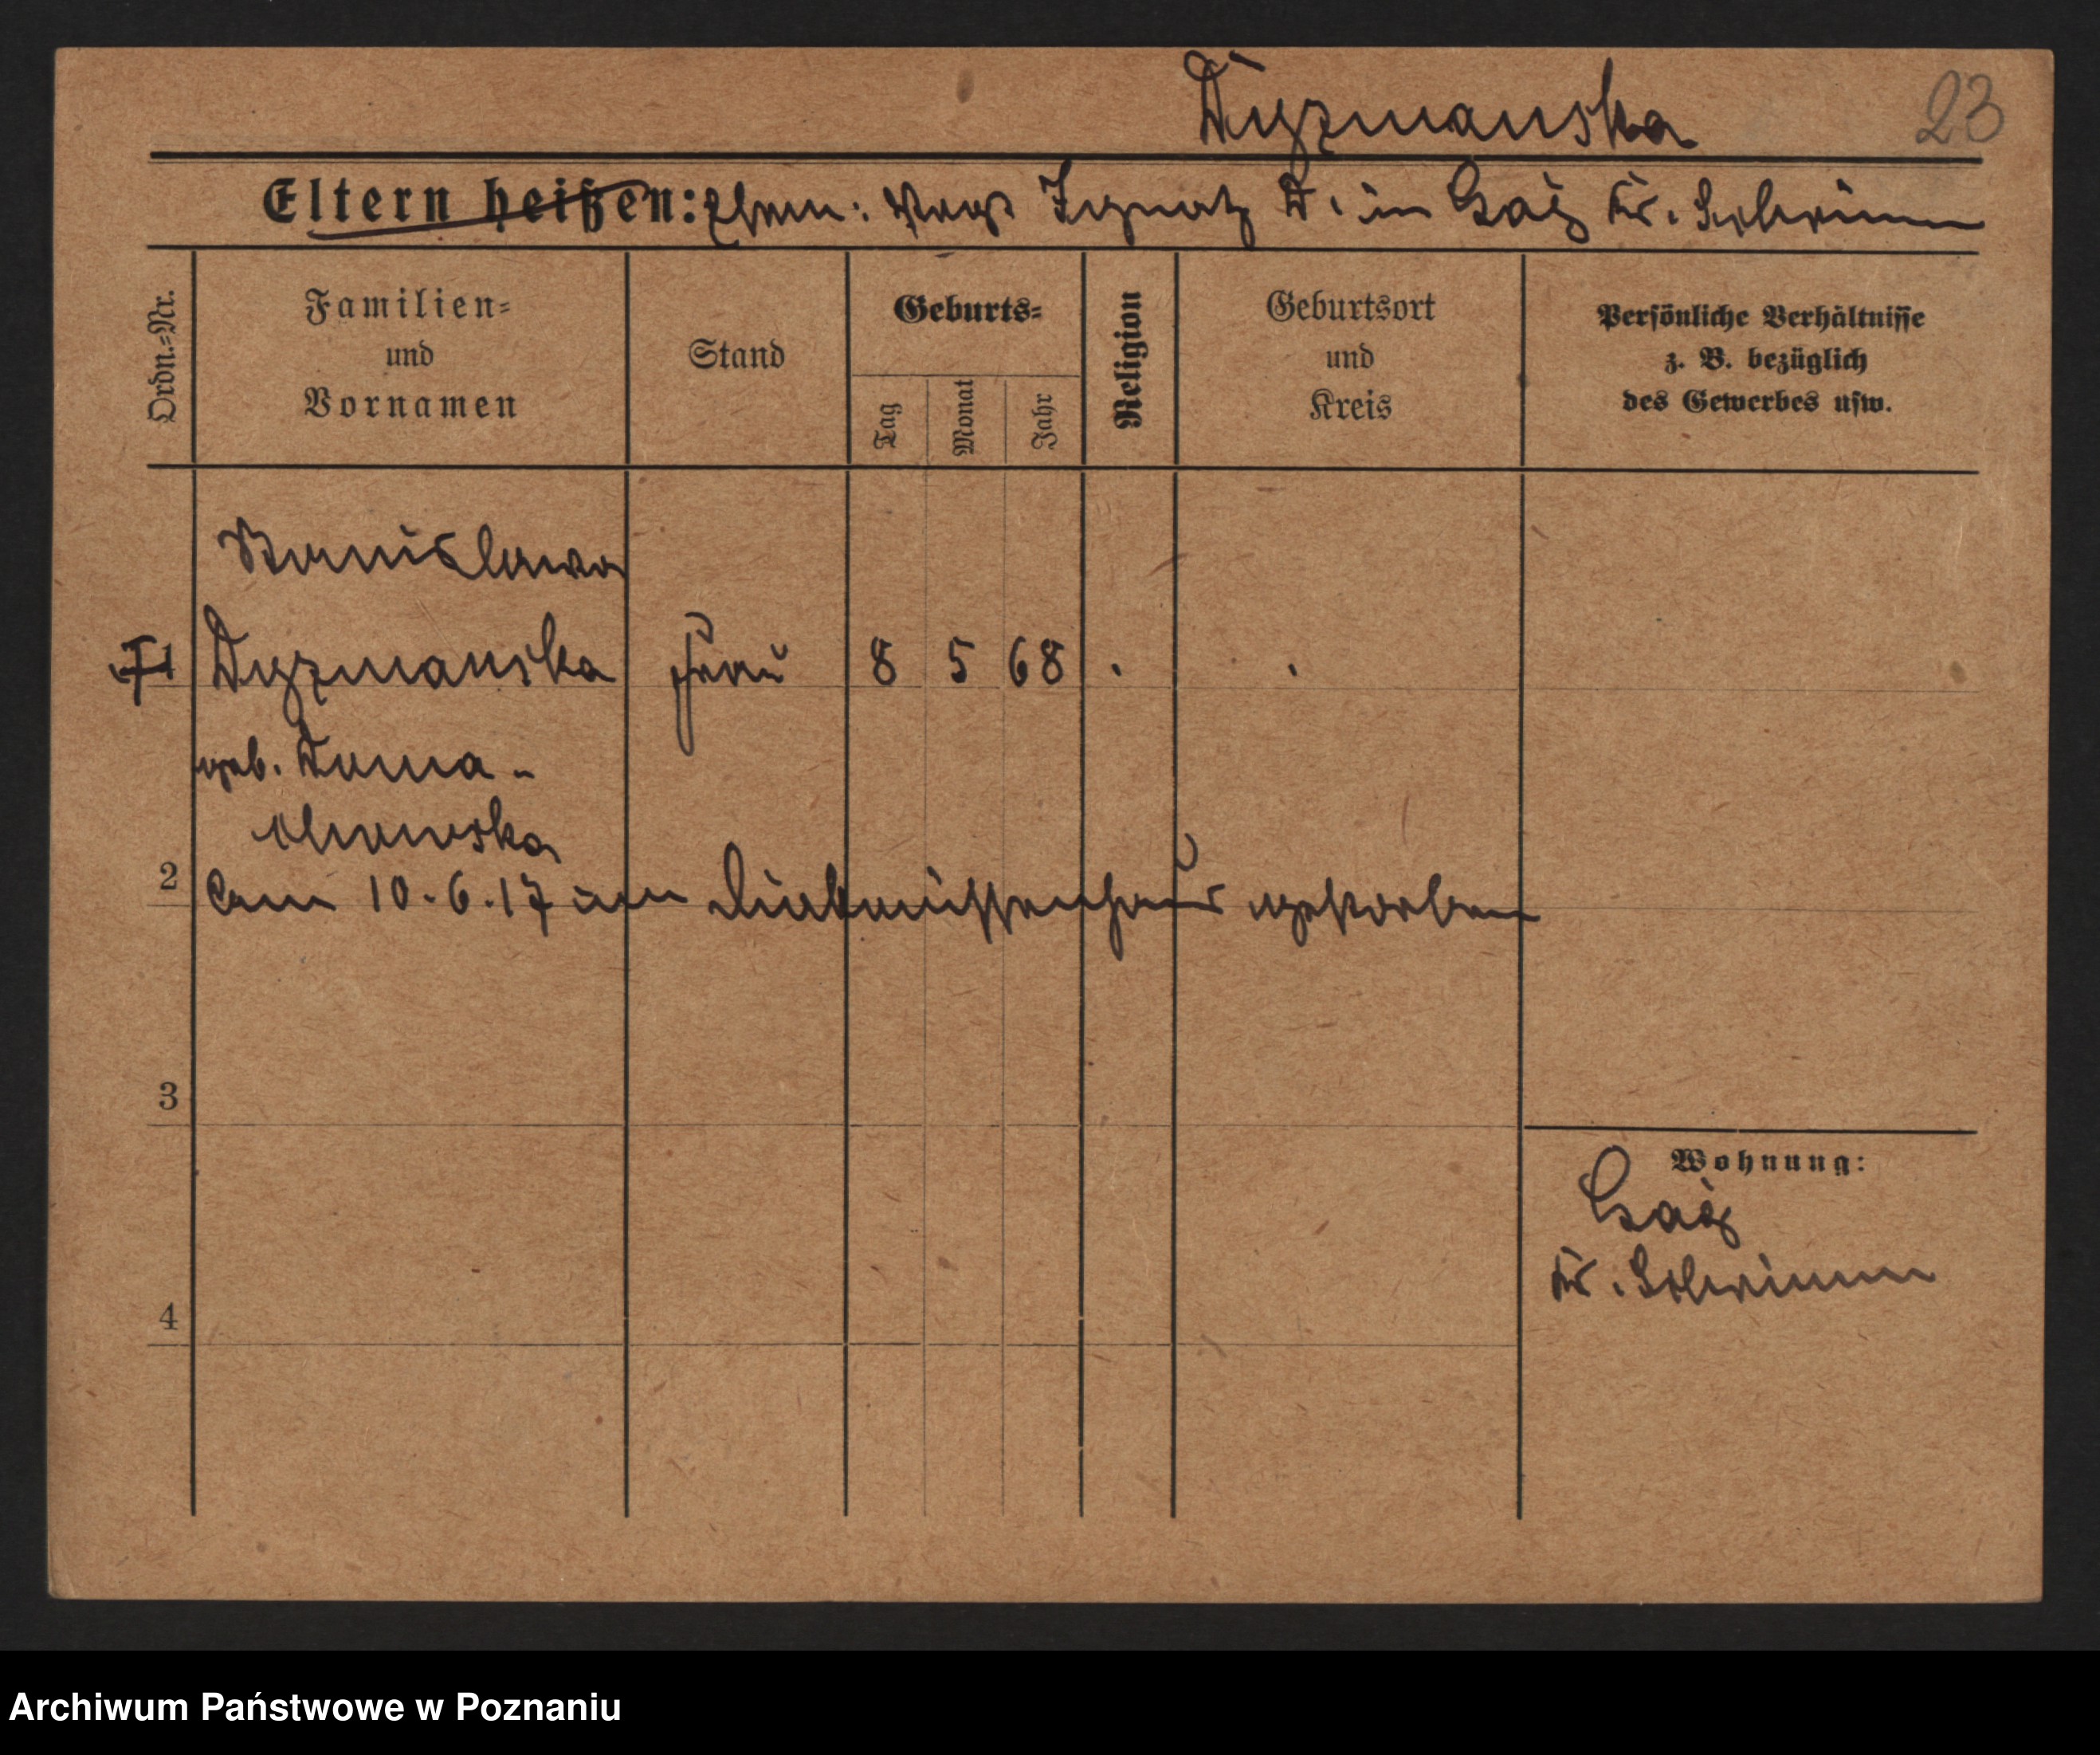 Dyzmanska 23
Eltern heißen: Ehem: Propst Ignatz D. in Gaj Kr. Schrimm
Ordn.-Nr.
Familien-
und
Vornamen
Stand
Geburts-
Tag
Monat
Jahr
Religion
Geburtsort
und
Kreis
Persönliche Verhältnisse
z. B. bezüglich
des Gewerbes usw.
Stanislawa
1 Dyzmanska Frau 8 5 68
geb. Toma-
chowska
2 am 10.6.17 im Diakonissenhaus gestorben
3
Wohnung:
Gaj
Kr. Schrimm
4
Archiwum Państwowe w Poznaniu